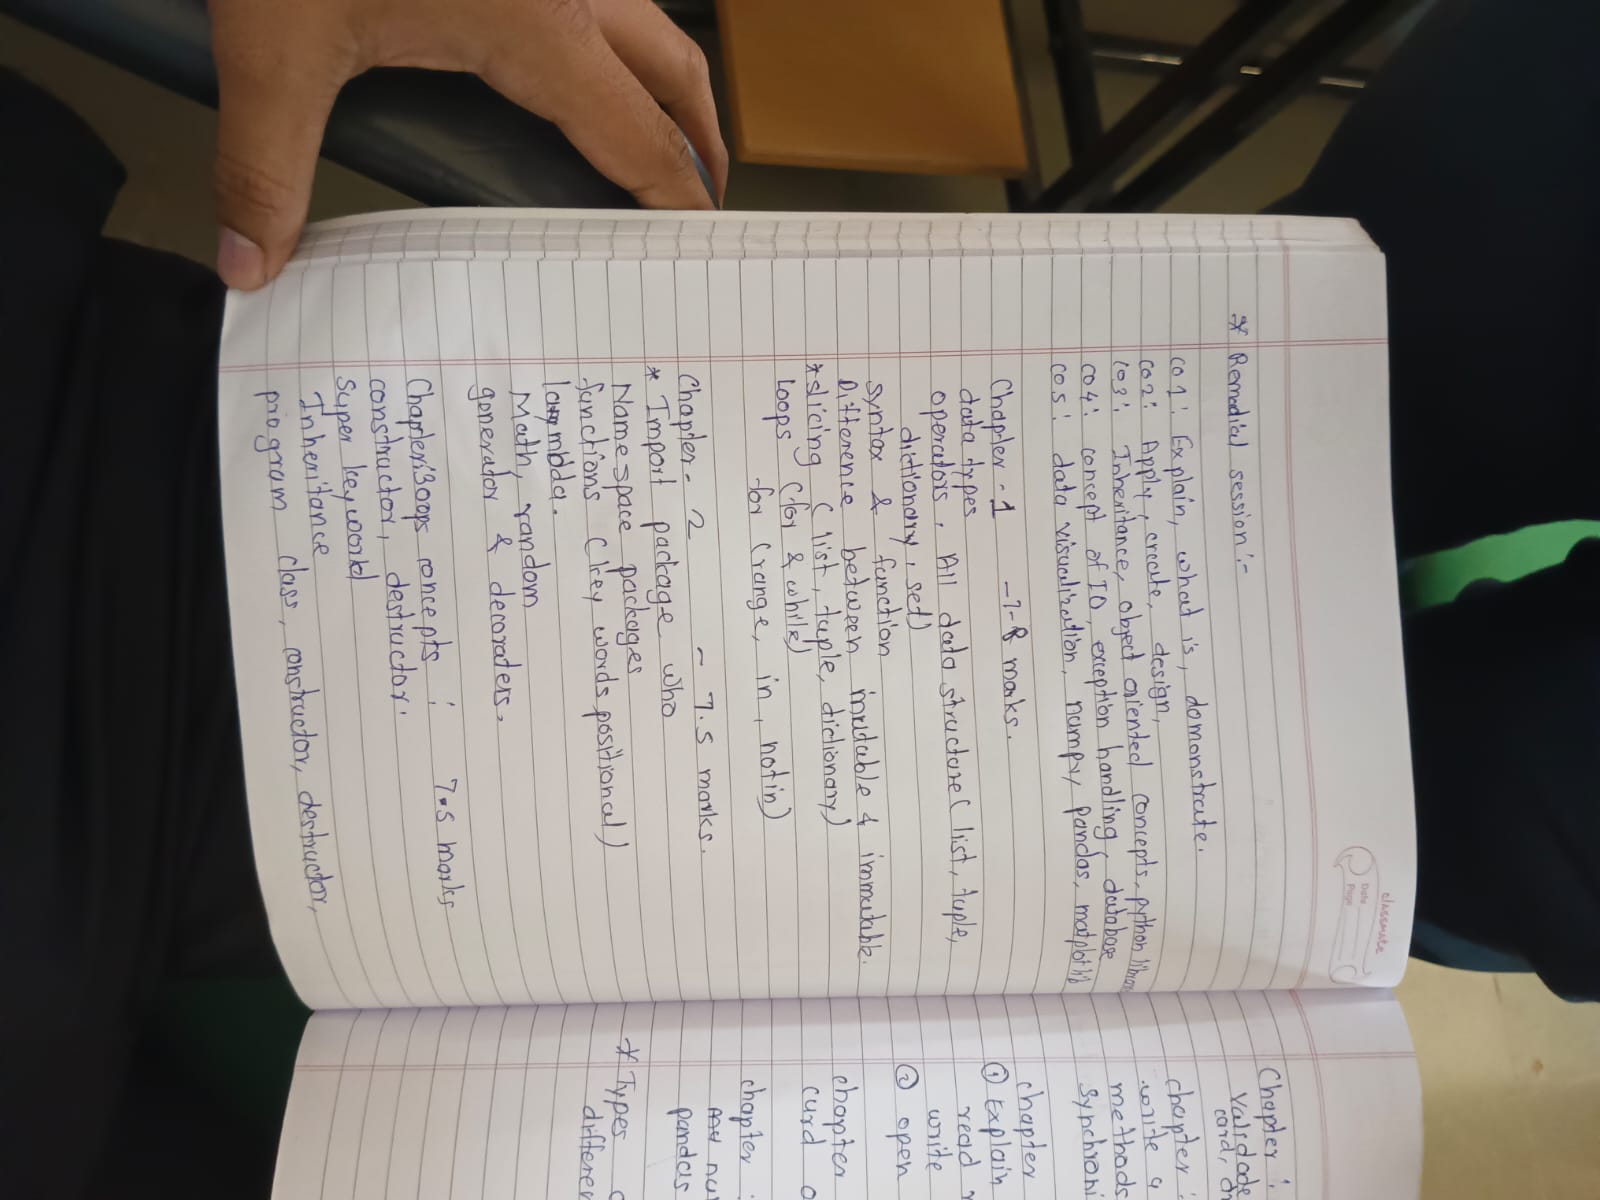 classmate
Date
Page
* Remedial session :-
CO1 : Explain, what is, domonstrate.
CO2 : Apply, create, design,
CO3 : Inheritance, object oriented concepts, python library
CO4 : concept of IO, exception handling, database
CO5 : data visualization, numpy pandas, matplotlib
Chapter - 1 - 7-8 marks.
data types
operators, All data structure ( list, tuple,
dictionary, set)
syntax & function
Difference between mutable & immutable.
* slicing ( list, tuple, dictionary)
loops (for & while)
for (range, in, not in)
Chapter - 2 ~ 7.5 marks.
* Import package who
Name space packages
functions (key words positional)
lambda.
Math, random
generator & decoraters.
Chapter:3 oops concepts : 7.5 marks
constructor, destructor.
Super keyword
Inheritance
program class, constructor, destructor,
Chapter :
Validate
card,
chapter :
write a
methods
Synchroni
chapter
① Explain
read
write
② open
chapter
curd
chapter :
pandas
* Types
differen